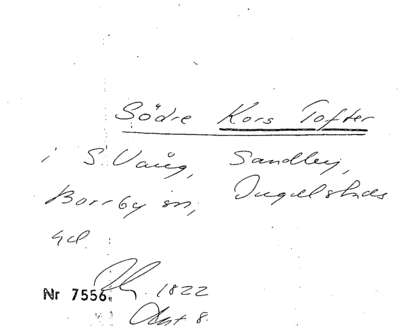 Södre Kors Tofter
i S. Vång, Sandby,
Borrby sn, Ingelstads
hd.
Nr 7556. 1822
Akt 8.